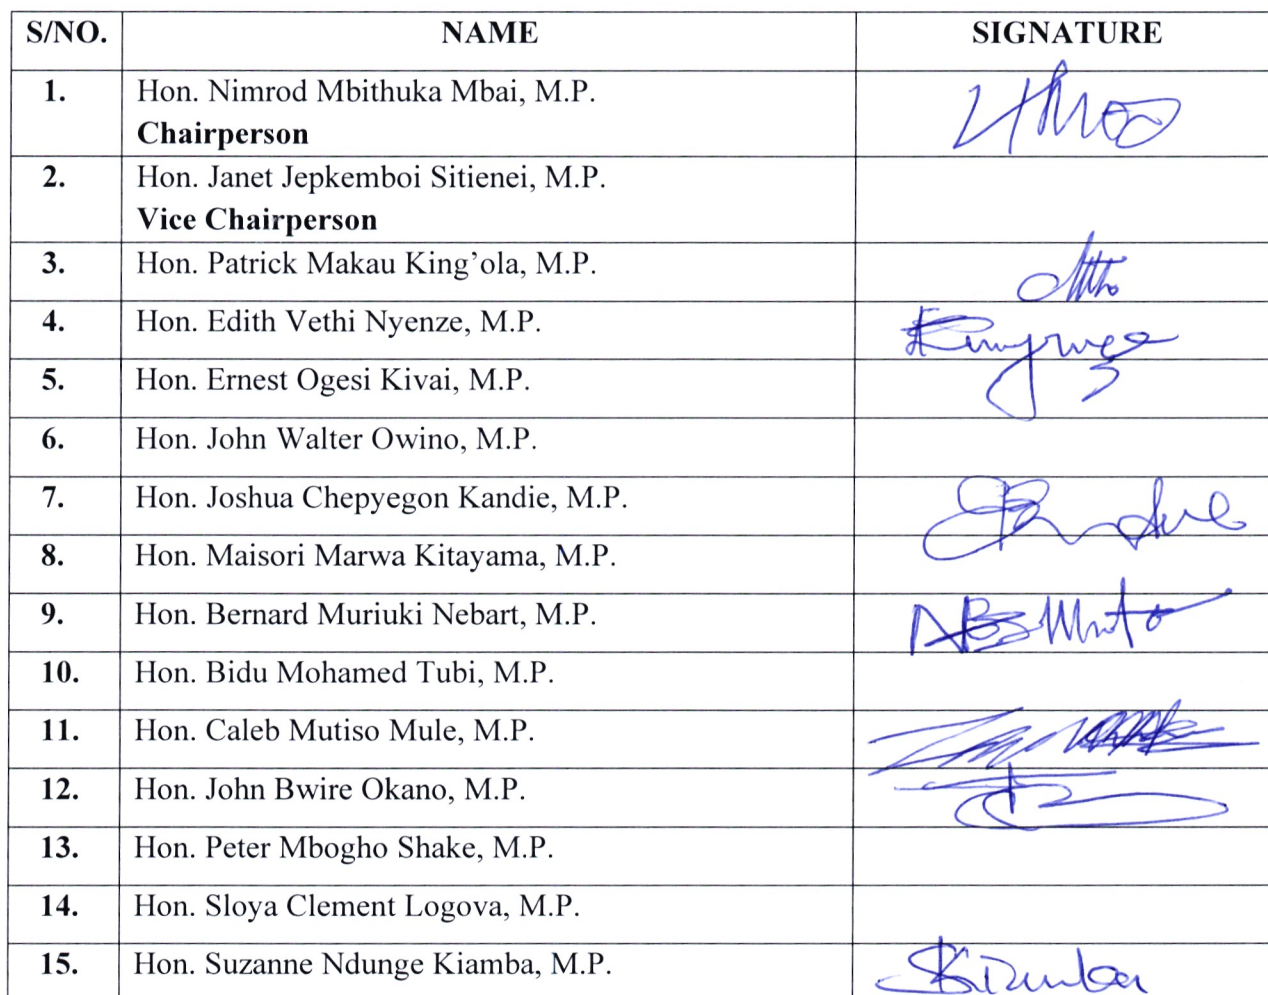 S/NO. NAME SIGNATURE
1. Hon. Nimrod Mbithuka Mbai, M.P.
Chairperson
2. Hon. Janet Jepkemboi Sitienei, M.P.
Vice Chairperson
3. Hon. Patrick Makau King’ola, M.P.
4. Hon. Edith Vethi Nyenze, M.P.
5. Hon. Ernest Ogesi Kivai, M.P.
6. Hon. John Walter Owino, M.P.
7. Hon. Joshua Chepyegon Kandie, M.P.
8. Hon. Maisori Marwa Kitayama, M.P.
9. Hon. Bernard Muriuki Nebart, M.P.
10. Hon. Bidu Mohamed Tubi, M.P.
11. Hon. Caleb Mutiso Mule, M.P.
12. Hon. John Bwire Okano, M.P.
13. Hon. Peter Mbogho Shake, M.P.
14. Hon. Sloya Clement Logova, M.P.
15. Hon. Suzanne Ndunge Kiamba, M.P.